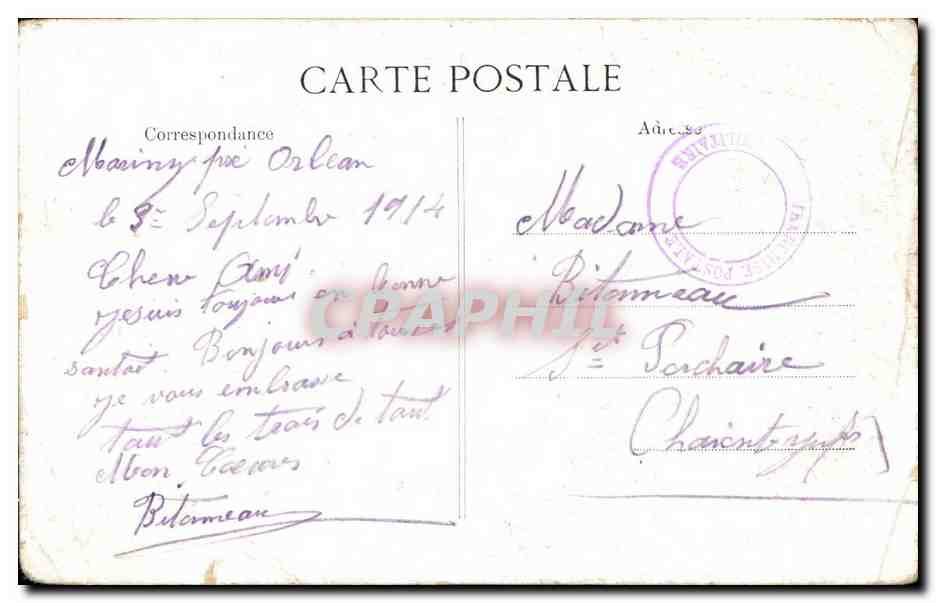 CARTE POSTALE
Correspondance
Mariny pré Orlean
le 3= Septembre 1914
Chere Ami
Je suis toujours en bonne
santat. Bonjours à toutes
Je vous embrasse
tout les trois de tout
Mon
Bitonneau
Adresse
Madame
Bitonneau
St= Porchaire
Charente
FRANCHISE POSTALE MILITAIRE
CRAPHIL